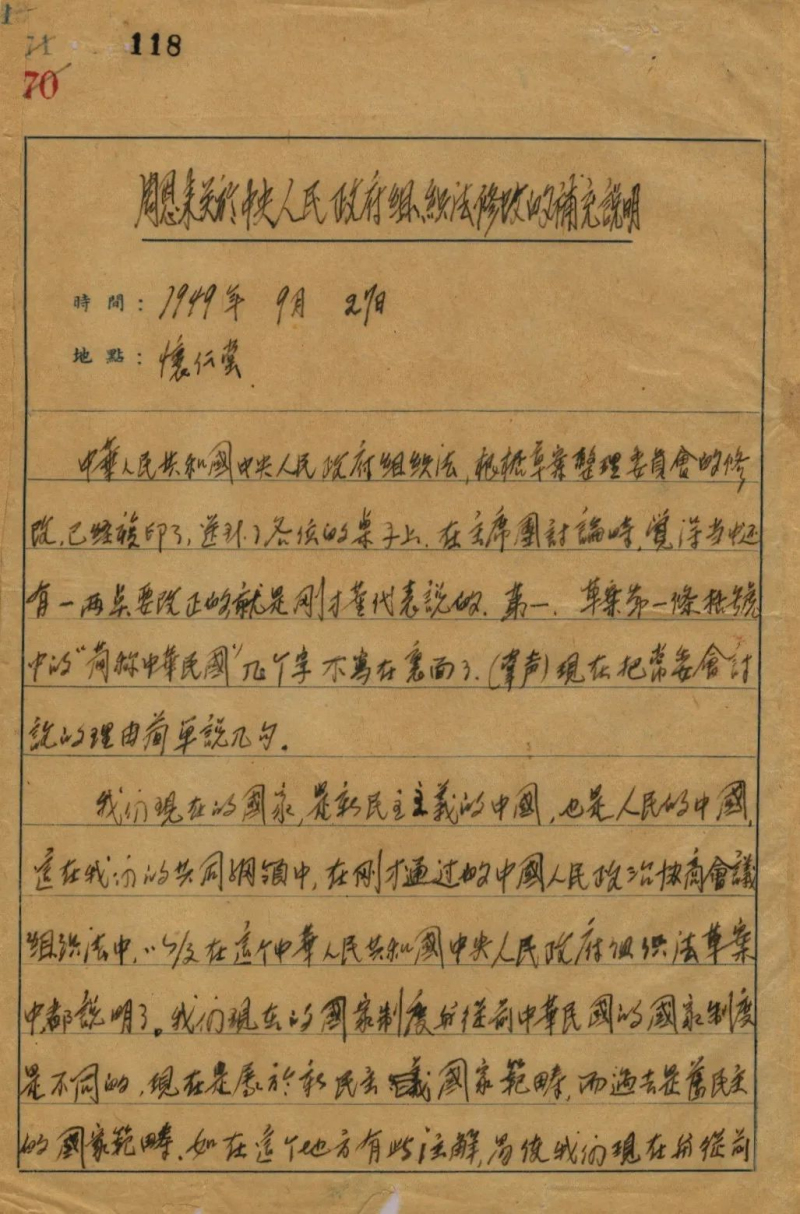 118
70
周恩来关於中央人民政府组织法修改的補充説明
時間：1949年 9月 27日
地點：懷仁堂
中華人民共和國中央人民政府组织法，根据草案整理委員會的修
改，已经複印了，送到了各位的桌子上。在主席團討論時，覺得当中还
有一两点要改正的就是刚才董代表説的。第一、草案第一條括號
中的“简称中華民國”几个字不寫在裏面了。(掌声)現在把常委會討
説的理由简单説几句。
我们現在的國家，是新民主主義的中國，也是人民的中國，
這在我们的共同綱領中，在刚才通过的中國人民政治协商會議
组织法中，以及在這个中華人民共和國中央人民政府组织法草案
中都説明了。我们現在的國家制度与從前中華民國的國家制度
是不同的，現在是属於新民主義國家範畴，而過去是舊民主
的國家範畴，如在這个地方有此注解，易使我们現在与從前